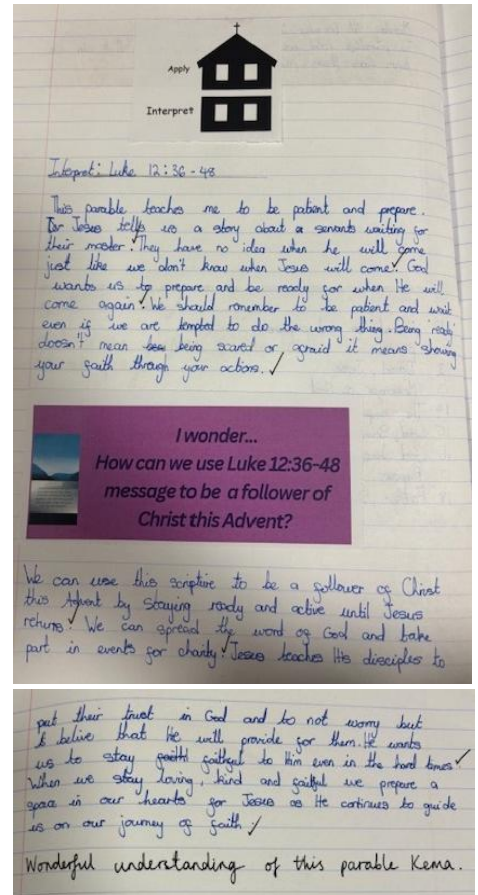 Apply
Interpret
Interpret: Luke 12:36-48
This parable teaches me to be patient and prepare.
Jesus tells us a story about a servants waiting for
their master. They have no idea when he will come
just like we don't know when Jesus will come. God
wants us to prepare and be ready for when He will
come again. We should remember to be patient and wait
even if we are tempted to do the wrong thing. Being ready
doesn't mean being scared or afraid it means showing
your faith through your actions.
I wonder...
How can we use Luke 12:36-48
message to be a follower of
Christ this Advent?
We can use this scripture to be a follower of Christ
this Advent by staying ready and active until Jesus
returns. We can spread the word of God and take
part in events for charity. Jesus teaches His disciples to
put their trust in God and to not worry but
to belive that He will provide for them. He wants
us to stay faithful to Him even in the hard times
When we stay loving, kind and faitful we prepare a
space in our hearts for Jesus as He continues to guide
us on our journey of faith
Wonderful understanding of this parable Kema.